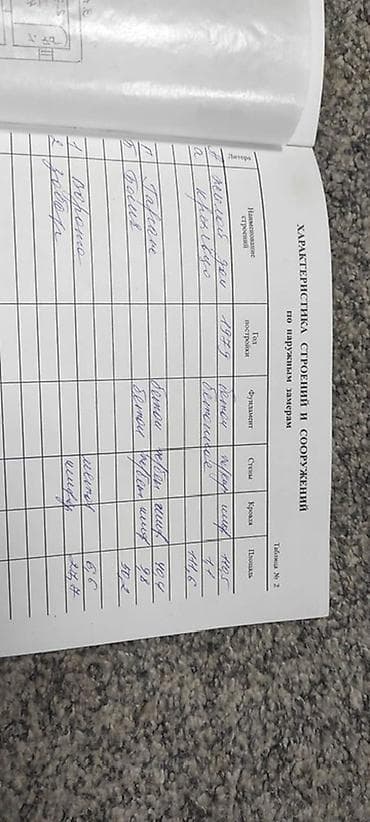 ХАРАКТЕРИСТИКА СТРОЕНИЙ И СООРУЖЕНИЙ
по наружным замерам
Таблица № 2
Литера Наименование строений Год постройки Фундамент Стены Кровля Площадь
жилой дом 1979 бетон шиф 110,5
а крыльцо бетонные 1,1
111,6
Г Гараж бетон шиф 40,4
Б Баня бетон шиф 9,8
50,2
1 ворота метал 6,6
2 забор шифер